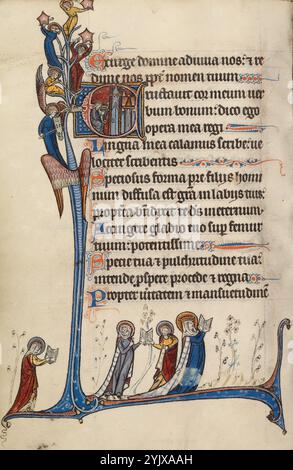 Exurge domine adiuua nos: et re
dime nos ppt nomen tuum
Eructauit cor meum uer
bum bonum: dico ego
opera mea regi
Lingua mea calamus scribe: ue
lociter scribentis
Speciosus forma pre filiis homi
num diffusa est gra in labiis tuis:
propterea te ds in eternum
Accingere gladio tuo sup femur
tuum: potentissime
Specie tua et pulchritudine tua:
intende pspere procede et regna
Propter ueritatem et mansuetudine
alamy
2YJXAAH